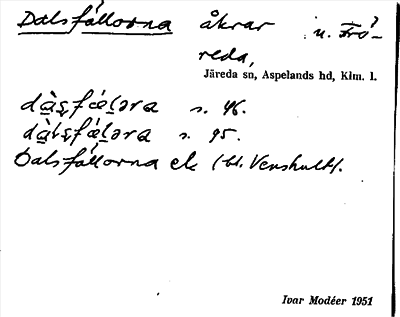 Dalsfållorna åkrar u. Frö-
reda,
Järeda sn, Aspelands hd, Klm. l.
dàs̨fǽlǝra s. 46.
dàls̨fǽlǝra s. 95.
Dalsfållorna ek (bl. Venshult).
Ivar Modéer 1951